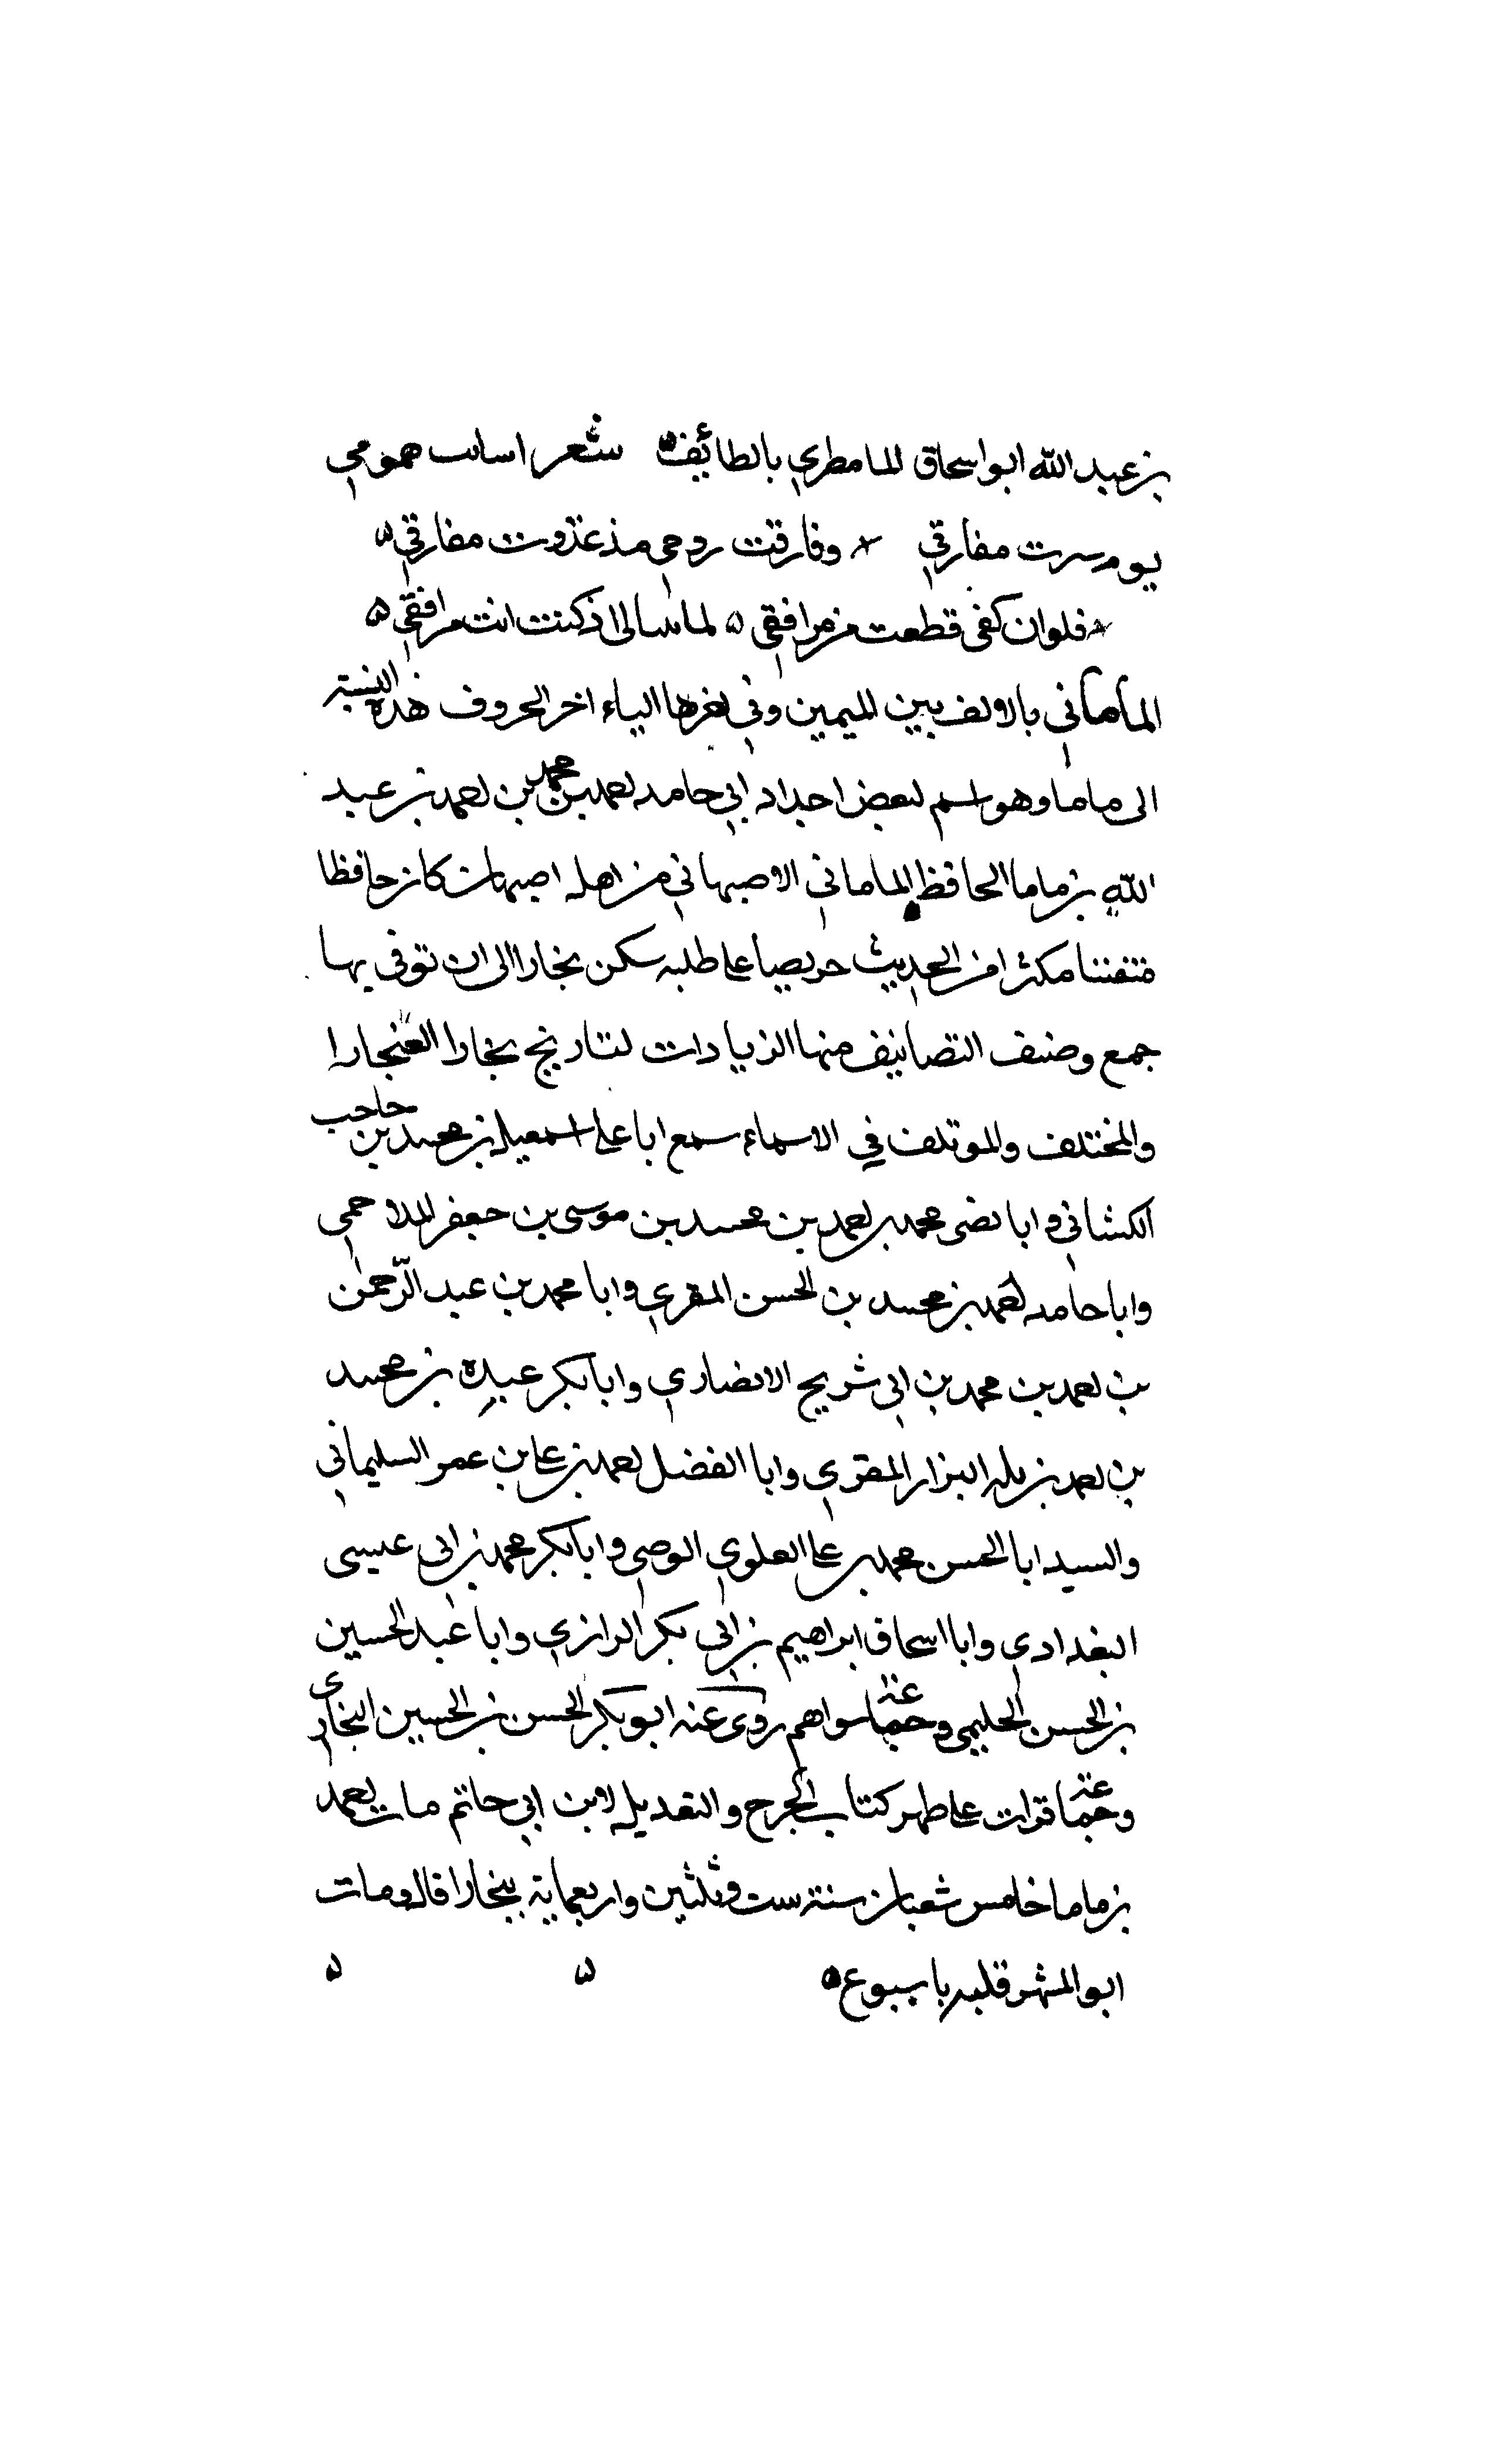 بن عبد الله ابو اسحاق المامطري بالطائف شعر اسات همومي
يوم سرت مفارقي وفارقت روحي مذ غدوت مفارقي
فلوان كفى قطعت من مرافقي لما سالى اذ كنت انت مرافقي
المامائي بالالف بين الميمين وفي اخرها الياء اخر الحروف هذه النسبة
الى ماما وهو اسم لبعض اجداد ابي حامد احمد بن محمد بن احمد بن عبد
الله بن ماما الحافظ الماماني الاصبهاني من اهل اصبهان كان حافظا
متفننا مكثرا من الحديث حريصا على طلبه سكن بخارا الى ان توفي بها
جمع وصنف التصانيف منها الزيادات لتاريخ بخارا لغنجارا
والمختلف والموتلف في الاسماء سمع ابا على اسمعيل بن محمد بن حاجب
الكشاني وابا نصر محمد بن احمد بن محمد بن موسى بن جعفر الملاحمي
وابا حامد احمد بن محمد بن الحسن المقري وابا محمد بن عبد الرحمن
بن احمد بن محمد بن ابي شريح الانصاري وابا بكر عبيد بن محمد
بن احمد بن البزار المقري وابا الفضل احمد بن على بن عمر السليماني
والسيد ابا الحسن محمد بن على العلوي الوصي وابا بكر محمد بن ابي عيسى
البغدادي وابا اسحاق ابراهيم بن ابي بكر الرازي وابا عبد الحسين
بن الحسن الحليمي وجماعة سواهم روى عنه ابو بكر الحسن بن الحسين البخاري
وجماعة قرات على ظهر كتاب الجرح والتعديل لابن ابي حاتم مات احمد
بن ماما خامس شعبان سنة ست وثلثين واربعماية ببخارا قال ومات
ابو قلبه باسبوع